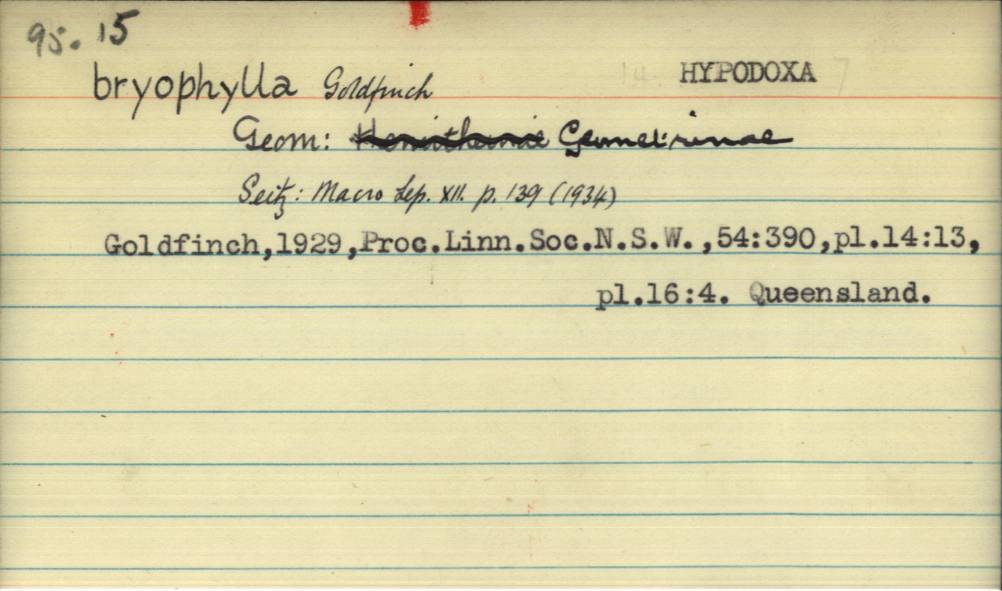 95. 15
bryophylla Goldfinch HYPODOXA
Geom: Hemitheinae Geometrinae
Seitz: Macro Lep. XII. p. 139 (1934)
Goldfinch,1929,Proc.Linn.Soc.N.S.W.,54:390,pl.14:13,
pl.16:4. Queensland.